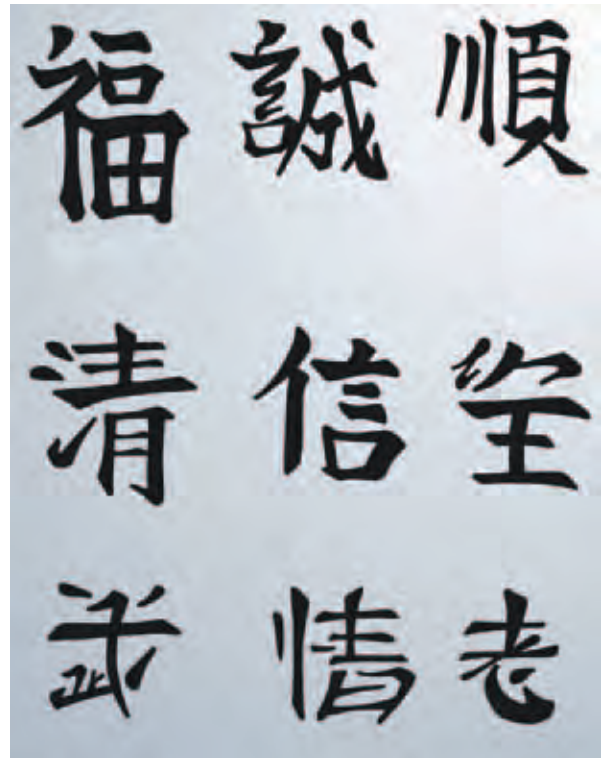 福 誠 順
清 信
武 情 老